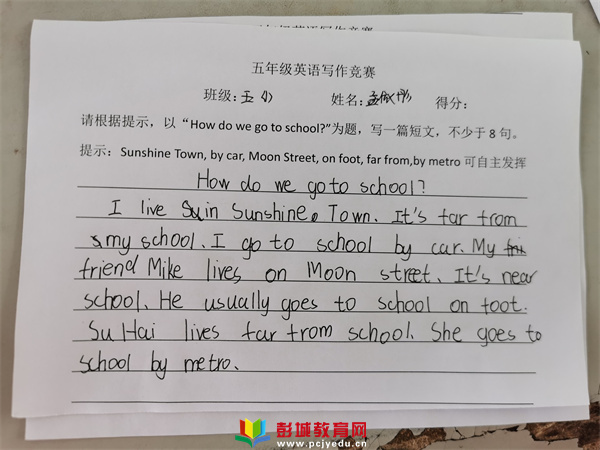 五年级英语写作竞赛
班级: 五(1) 姓名: 得分:
请根据提示，以“How do we go to school?”为题，写一篇短文，不少于8句。
提示: Sunshine Town, by car, Moon Street, on foot, far from,by metro 可自主发挥
How do we go to school?
I live in Sunshine Town. It's far from
my school. I go to school by car. My
friend Mike lives on Moon street. It's near
school. He usually goes to school on foot.
Su Hai lives far from school. She goes to
school by metro.
彭城教育网
www.pcjyedu.cn